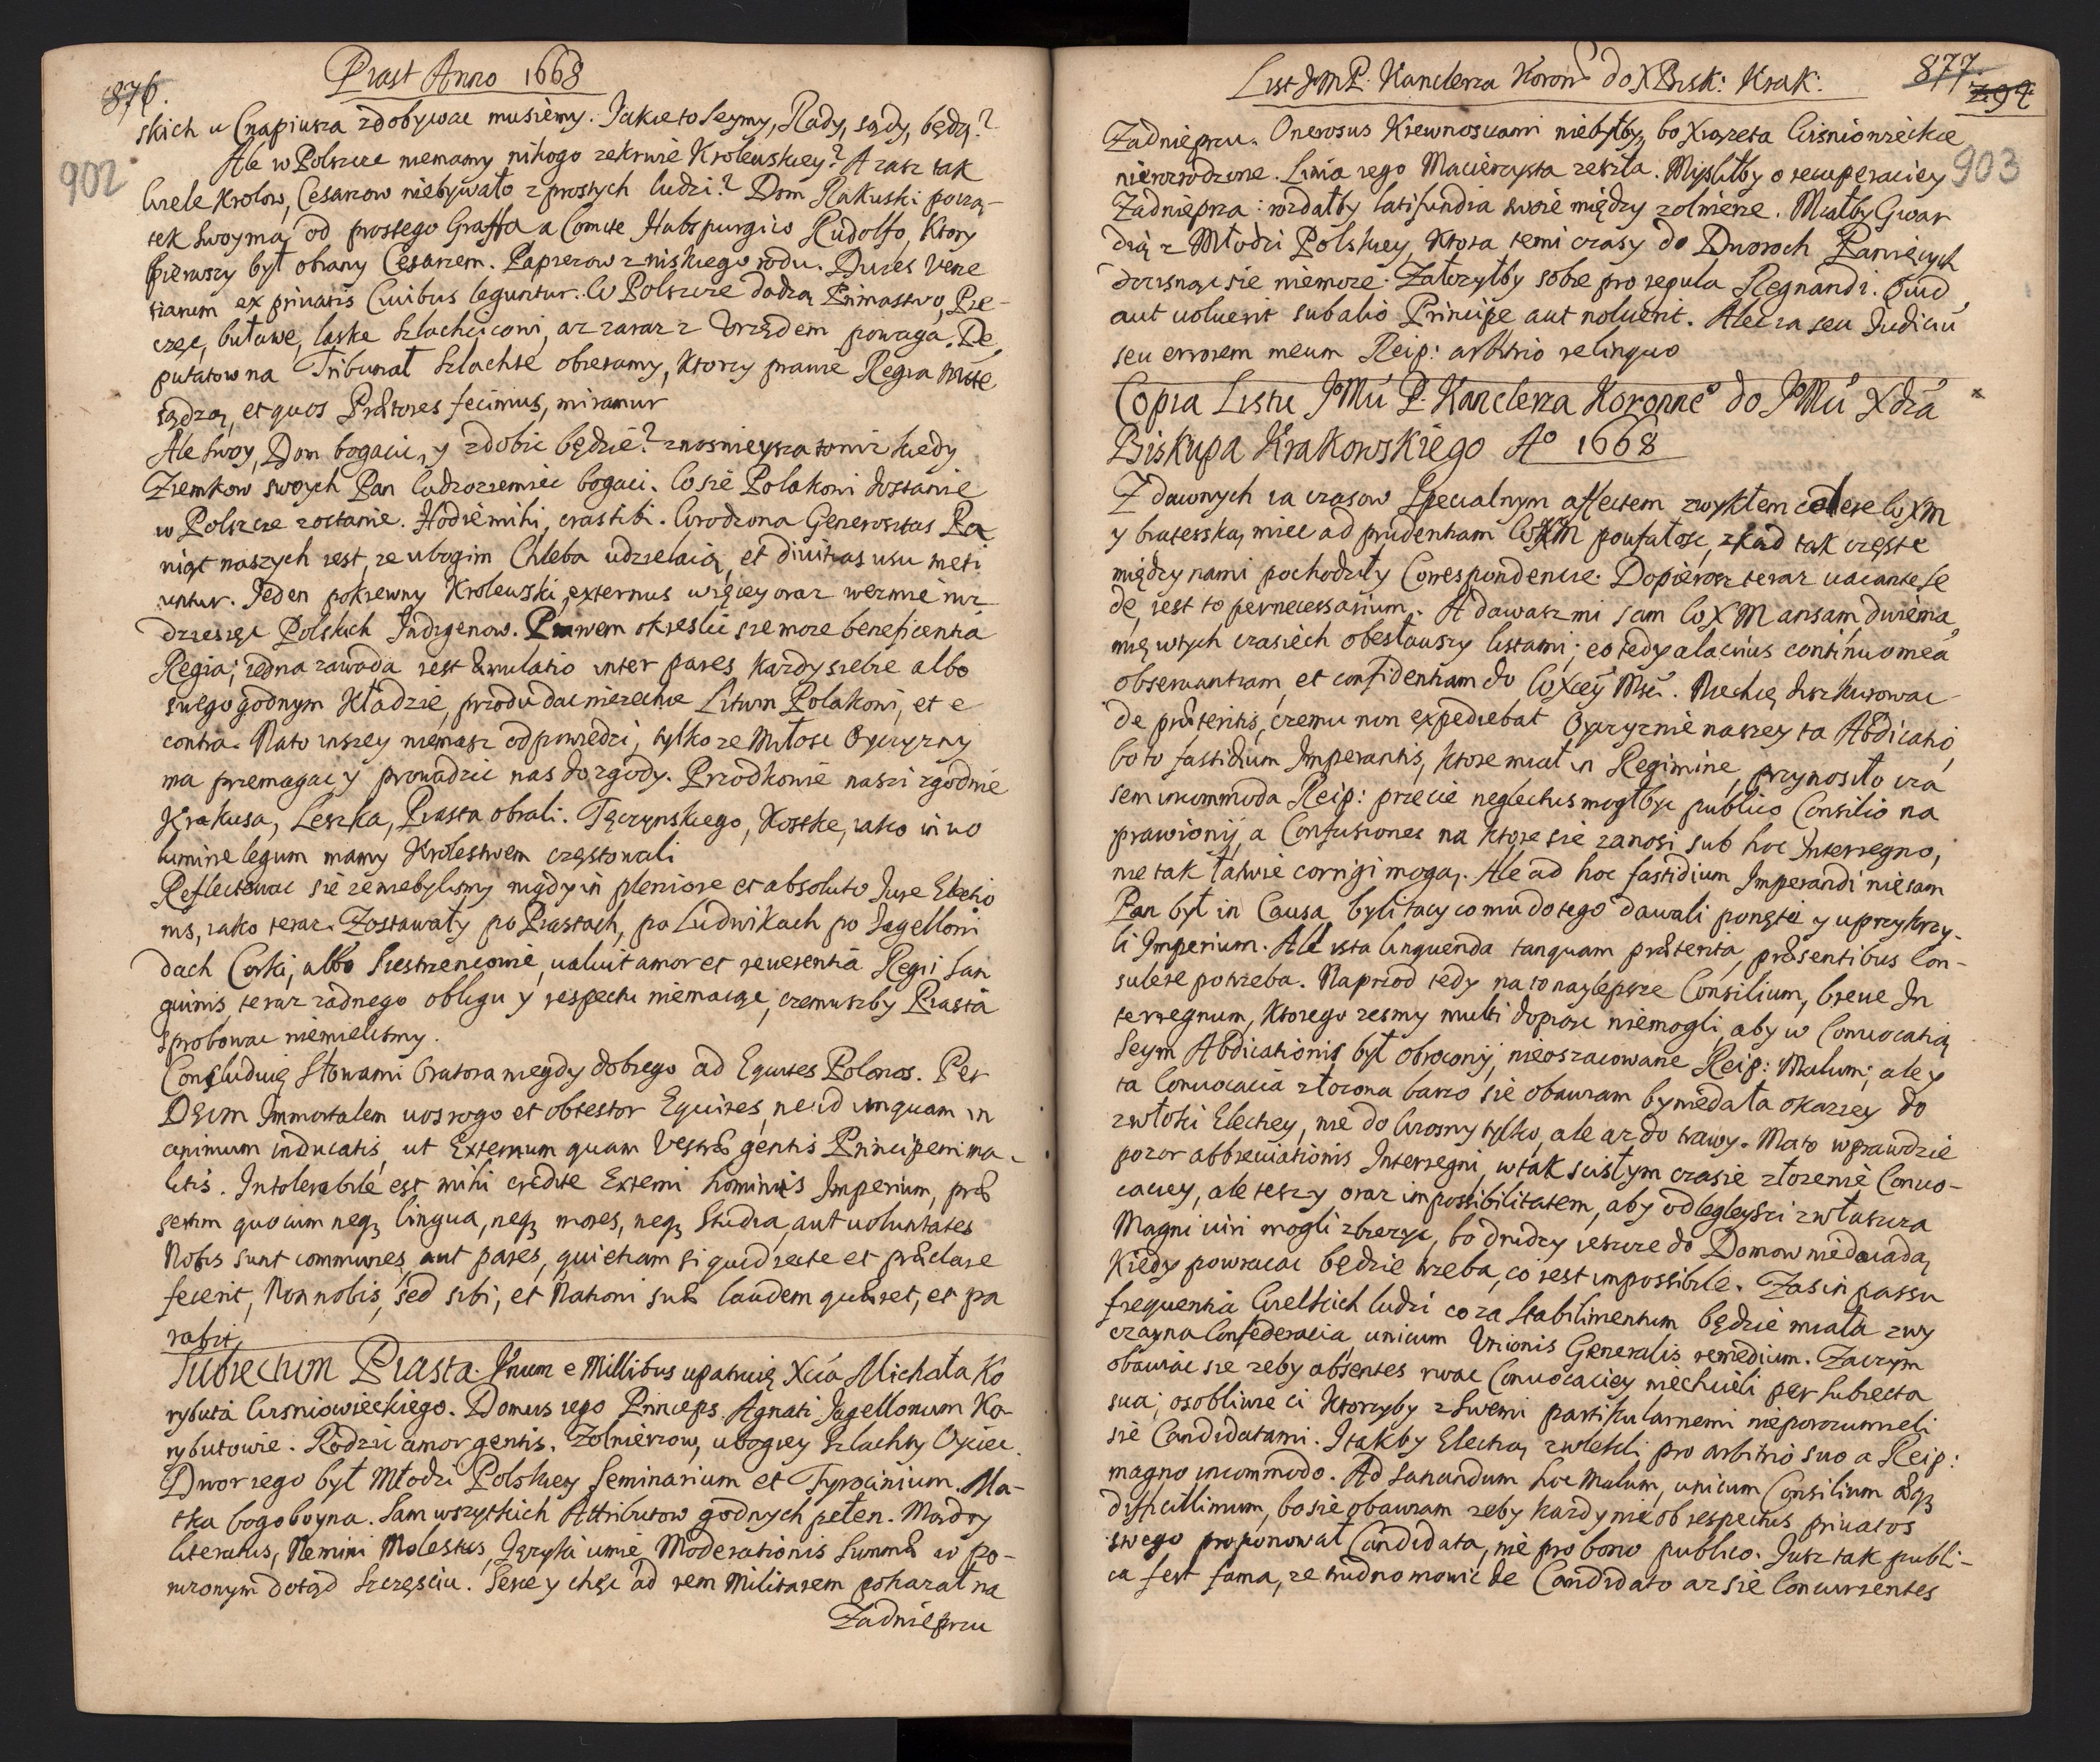 876.
Piast Anno 1668
902
skich u Cnapiusza zdobywac musiemy. Jakie to Seymy, Rady, sądy, będą?
Ale w Polszcze niemamy nikogo ze krwie Krolewskiey? A zasz tak
wiele Krolow, Cesarzow niebywało z prostych ludzi? Dom Rakuski począ-
tek swoy ma, od prostego Graffa a Comite Habspurgico Rudolfo, Ktory
pierwszy był obrany Cesarzem. Papiezow z niskiego rodu. Duces Vene
tiarum ex privatis Civibus leguntur. W Polszcze dadzą Primastwo, Pie-
częc, buławę, laskę szlachcicowi, az zaraz z Urzędem powaga. De
putatow na Tribunał szlachte obieramy, Ktorzy prawie Regia
sądzą, et quos Prætores fecimus, miramur
Ale swoy, Dom bogacic, y zdobic będzie? znosnieysza to niz kiedy
Ziemkow swoych Pan Cudzoziemiec bogaci. Co sie Polakowi dostanie
w Polszcze zostanie. Hodie mihi, cras tibi. Wrodzona Generositas Pa
niąt naszych iest, ze ubogim Chleba udzielaią, et divitias usu meti
untur. Jeden pokrewny Krolewski, externus więcey oraz wezmie niz
dziesięc Polskich Indigenow. Prawem okreslic sie moze beneficentia
Regia; iedna zawada iest Æmulatio inter pares, kazdy siebie albo
swego godnym Kładzie, przodu dac niezechce Litwin Polakowi, et e
contra. Na to inszey niemasz odpowiedzi, tylko ze Miłosc Oyczyzny
ma przemagac y prowadzic nas do zgody. Przodkowie naszi zgodnie
Krakusa, Leszka, Piasta obrali. Tęczynskiego, Kostke, iako in vo
lumine legum mamy Krolestwem częstowali
Reflectowac sie ze niebylismy nigdy in pleniore et absoluto Jure Electio
nis, iako teraz. Zostawały po Piastach, po Ludwikach po Jagelloni
dach Corki, albo Siestrzencowie, valuit amor et reverentia Regii san
guinis, teraz zadnego obligu y respectu niemaiąc, czemuszby Piasta
sprobowac niemielismy.
Concluduię słowami Oratora niegdy dobrego ad Equites Polonos. Per
DEUM Immortalem vos rogo et obtestor Equites, ne id unquam in
animum inducatis, ut Externum quam Vestræ gentis Principem ma-
litis. Intolerabile est mihi credite Externi hominis Imperium, præ
sertim quocum neq3 lingua, neq3 mores, neq3 studia, aut voluntates
Nobis sunt communes, aut pares, qui etiam si quid recte et præclare
fecerit, Non nobis, sed sibi, et Nationi suæ laudem quæret, et pa
rabit.
Subiectum Piasta. Unum e Millibus upatruię Xcia Michała Ko
rybuta Wisniowieckiego. Domus iego Princeps. Agnati Jagellonum Ko-
rybutowie. Rodzic amor gentis. Zolnierzow, ubogiey Szlachty Oyciec.
Dwor iego był Młodzi Polskiey Seminarium et Tyrocinium. Ma-
tka bogoboyna. Sam wszytkich Attributow godnych pełen. Mądry
literatus, Nemini Molestus, Języki umie Moderationis Summæ w po-
mronym dotąd szczęsciu. Serce y chęc ad rem Militarem pokazał na
Zadnieprzu
List JMP. Kanclerza Koron do X Bisk: Krak:
877.
903
Zadnieprzu. Onerosus Krewnosciami niebyłby, bo Xiązęta Wisniowieckie
nierozrodzone. Linia iego Macierzysta zeszła. Mysliłby o recuperaciey
Zadnieprza: rozdałby latifundia swoie między zolnierze. Miałby Gwar
dią z Młodzi Polskiey, Ktora temi czasy do Dworoch Panięcych
dociskac sie niemoze. Załozyłby sobie pro regula Regnandi. Quid
aut voluerit sub alio Principe, aut noluerit. Alec ia seu Judiciu
seu errorem meum Reip: arbitrio relinquo
Copia Listu JMu P. Kanclerza Koronne do JMu Xdza
Biskupa Krakowskiego Ao 1668
Z dawnych ia czasow Specialnym affectem zwykłem colere WXM
y braterską, miec ad prudentiam WXM poufałosc, zkąd tak częste
między nami pochodziły Correspondencie. Dopierosz teraz vacante Se
de, iest to pernecessarium. A dawasz mi sam WXM ansam
mię w tych czasiech obesławszy listami; eo tedy alacrius continuo mea
observantiam, et confidentiam do WXcey Msci. Niechcę discurowac
de præteritis, czemu non expediebat Oyczyznie naszey ta Abdicatio,
bo to fastidium Imperantis, ktore miał in Regimine, przynosiło wza
sem incommoda Reip: przecie neglectus mogłbyc publico Consilio na
prawiony, a Confusiones na ktore sie zanosi sub hoc Interregno,
nie tak łatwie corrigi mogą. Ale ad hoc fastidium Imperandi nie sam
Pan był in Causa, byli tacy co mu do tego dawali ponętę y uprzykrzy-
li Imperium. Ale ista linquenda tanquam præterita, præsentibus Con-
sulere potrzeba. Naprzod tedy na to naylepsze Consilium, breve In
terregnum, ktorego zesmy multi dopiąc niemogli, aby w Convocatią
Seym Abdicationis był obrocony, nieoszacowane Reip: Malum; ale y
ta Convocacia złozona barzo sie obawiam by niedała okaziey do
zwłoki Electiey, nie do Wiosny tylko, ale az do trawy. Ma to w prawdzie
pozor abbreviationis Interregni, w tak scisłym czasie złozenie Convo-
caciey, ale tesz y oraz impossibilitatem, aby odlegleyszi zwłaszcza
Magni viri mogli zbiezyc, bo drudzy ieszcze do Domow niedoiadą,
kiedy powracac będzie trzeba, co iest impossibile. Zas in passu
frequentia Wielkich ludzi co za stabilimentum będzie miała zwy
czayna Confederacia unicum Unionis Generalis remedium. Zaczym
obawiac sie zeby absentes rwac Convocaciey niechcieli per subiecta
sua, osobliwie ci ktorzyby z swemi partikularnemi nieporozumieli
sie Candidatami. I takby Electią zwlekli pro arbitrio suo a Reip:
magno incommodo. Ad sanandum hoc Malum, unicum Consilium æq3
difficillimum, bo sie obawiam zeby kazdy nie ob respectus privatos
swego proponował Candidata, nie pro bono publico. Jusz tak publi-
ca fert fama, ze trudno mowic de Candidato az sie Concurrentes